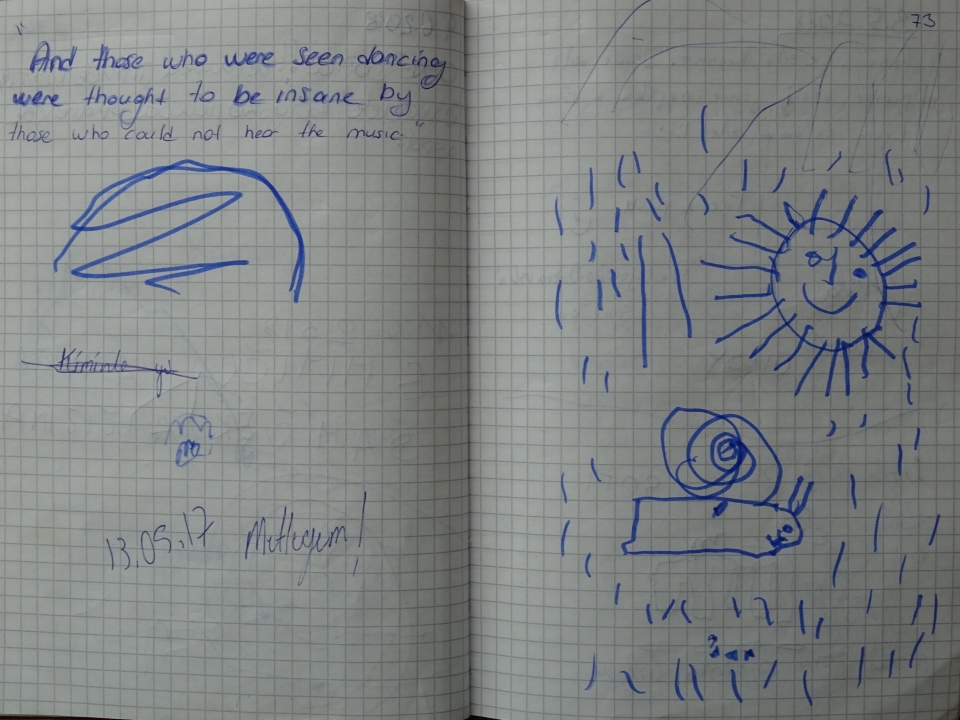 "And those who were seen dancing
were thought to be insane by
those who could not hear the music."
13.09.17 Mutluyum!
73